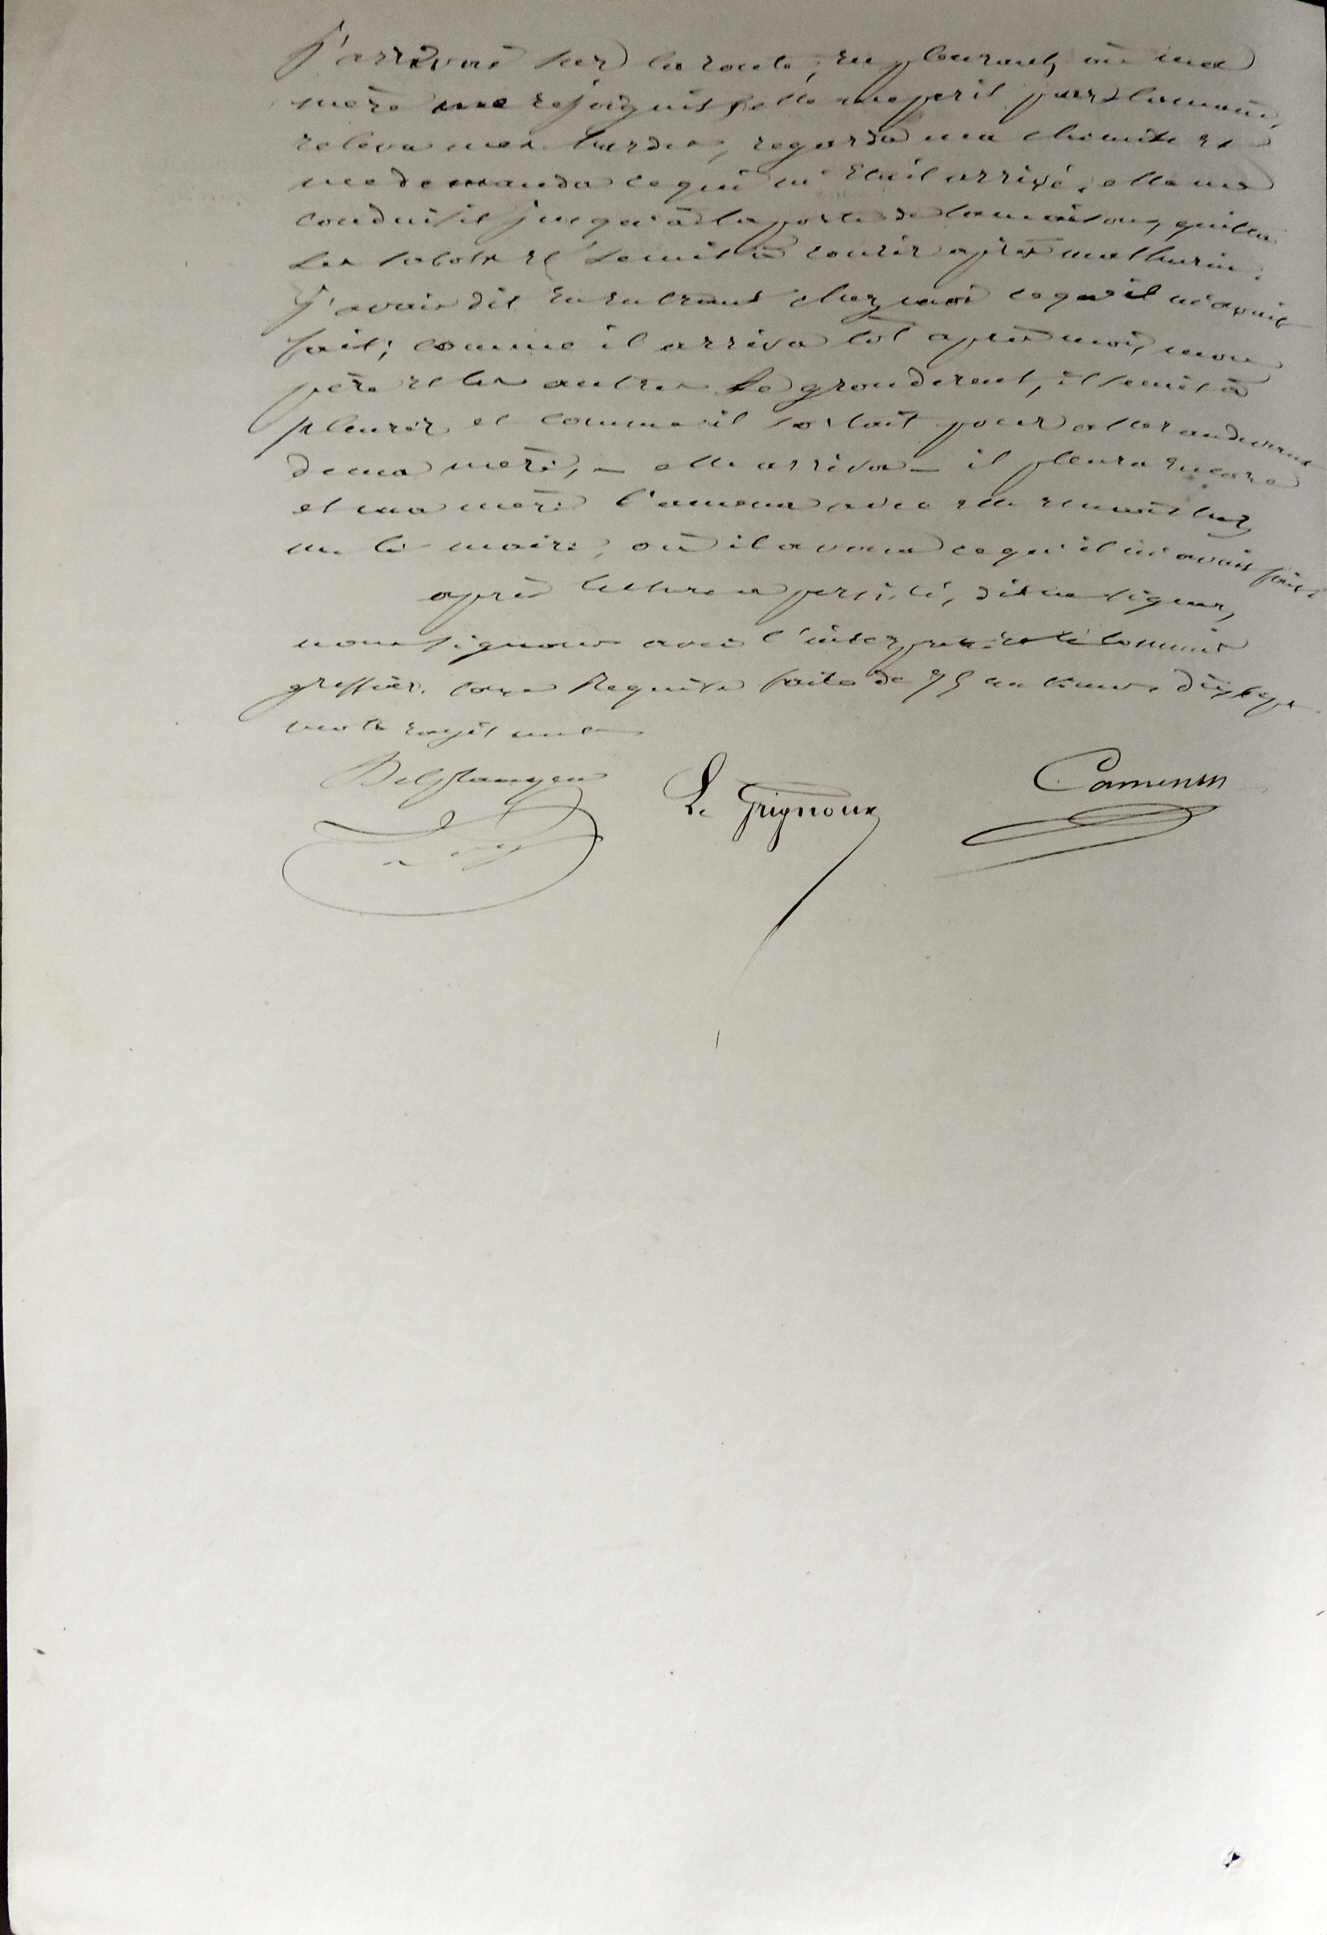 j'arrivai sur la route, en pleurant, où ma
mère me rejoignit, elle me prit par la main,
releva mes hardes, regarda ma chemise et
me demanda ce qui m'était arrivé, elle me
conduisit jusqu'à la porte de la maison, quitta
ses sabots et se mit à courir après mathurin.
j'avais dit en entrant chez moi ce qu'il m'avait
fait; comme il arriva tôt après moi, mon
père et les autres le grondèrent, il se mit à
pleurer et comme il sortait pour aller au devant
de ma mère, — elle arriva — il pleura encore
et ma mère l'amena avec elle chez
m. le maire, où il avoua ce qu'il m'avait fait.
après lecture a persisté, dit ne signer,
nous signons avec l'interprète et le commis
greffier. taxe requise faite de
mots rayés nuls
Le Grignoux Camenen